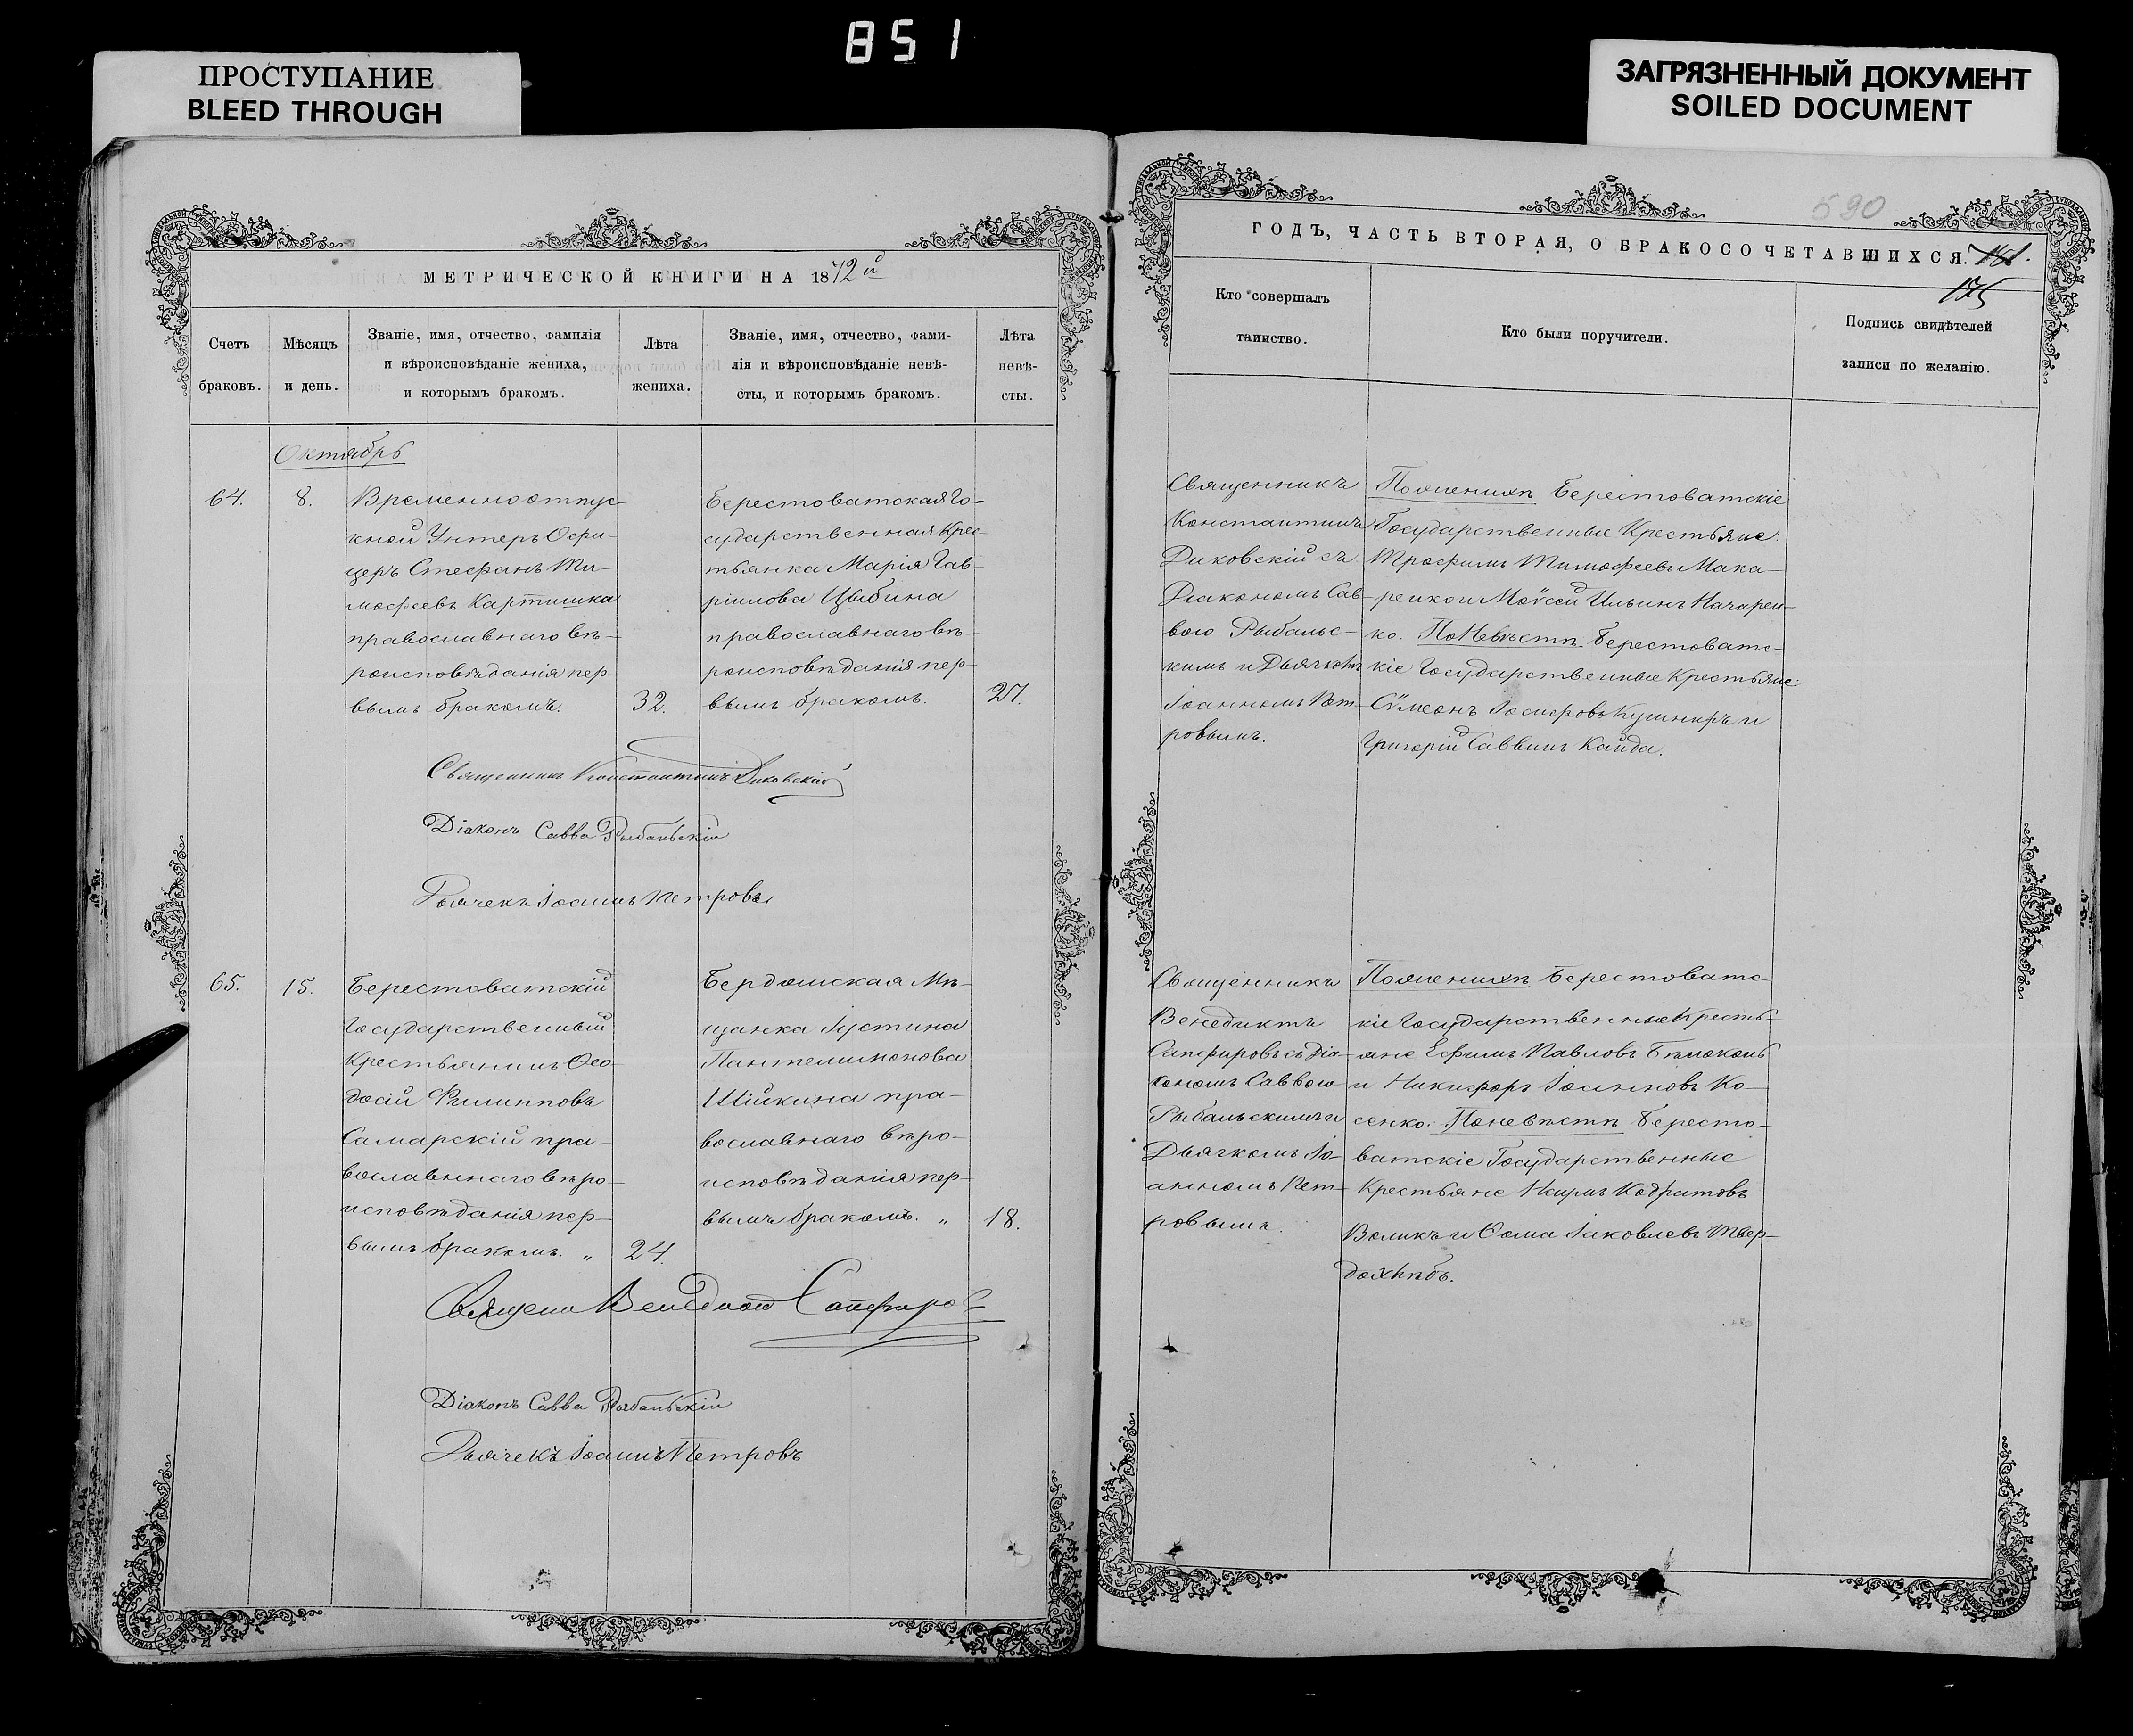 851
ПРОСТУПАНИЕ
BLEED THROUGH
ЗАГРЯЗНЕННЫЙ ДОКУМЕНТ
SOILED DOCUMENT
МЕТРИЧЕСКОЙ КНИГИ НА 1872й
Счетъ
браковъ.
Мѣсяцъ
и день.
Званіе, имя, отчество, фамилія
и вѣроисповѣданіе жениха,
и которымъ бракомъ.
Лѣта
жениха.
Званіе, имя, отчество, фами-
лія и вѣроисповѣданіе невѣ-
сты, и которымъ бракомъ.
Лѣта
невѣ-
сты.
Октябрь
64.
8.
Временноотпус-
кной Унтеръ Офи-
церъ Стефанъ Ти-
мофеевъ Картишка
православнаго вѣ-
роисповѣданія пер-
вымъ бракомъ.
32.
Берестоватская Го-
сударственная Крес-
тьянка Марія Гав-
ріилова Цыбина
православнаго вѣ-
роисповѣданія пер-
вымъ бракомъ.
27.
Священникъ Константинъ Диковскій
Діаконъ Савва Рыбальскій
Дьячекъ Іоаннъ Петровъ
65.
15.
Берестоватскій
Государственный
Крестьянинъ Ѳео-
досій Филипповъ
Самарскій пра-
вославнаго вѣро-
исповѣданія пер-
вымъ бракомъ. „
24.
Бердянская Мѣ-
щанка Іустина
Пантелимонова
Шійкина пра-
вославнаго вѣро-
исповѣданія пер-
вымъ бракомъ. „
18.
Священ Венедиктъ Сапфировъ
Діаконъ Савва Рыбальскій
Дьячекъ Іоаннъ Петровъ
590
ГОДЪ, ЧАСТЬ ВТОРАЯ, О БРАКОСОЧЕТАВШИХСЯ. 181.
175
Кто совершалъ
таинство.
Кто были поручители.
Подпись свидѣтелей
записи по желанію.
Священникъ
Константинъ
Диковскій съ
Діакономъ Сав-
вою Рыбальс-
кимъ и Дьячкомъ
Іоанномъ Пет-
ровымъ.
По женихѣ Берестоватскіе
Государственные Крестьяне:
Трофимъ Тимофеевъ Мака-
ренко и Моѵсей Ильинъ Назарен-
ко. По Невѣстѣ Берестоватс-
кіе Государственные Крестьяне:
Сѵмеонъ Іосифовъ Кушниръ и
Григорій Саввинъ Кайда.
Священникъ
Венедиктъ
Сапфировъ съ Діа-
кономъ Саввою
Рыбальскимъ и
Дьячкомъ Іо-
анномъ Пет-
ровымъ.
По женихѣ Берестоватс-
кіе Государственные Кресть-
яне Ефимъ Павловъ Бѣлоконь
и Никифоръ Іоанновъ Ко-
сенко. По невѣстѣ Бересто-
ватскіе Государственные
Крестьяне Наумъ Кодратовъ
Воликъ и Ѳома Іаковлевъ Твер-
дохлѣбъ.